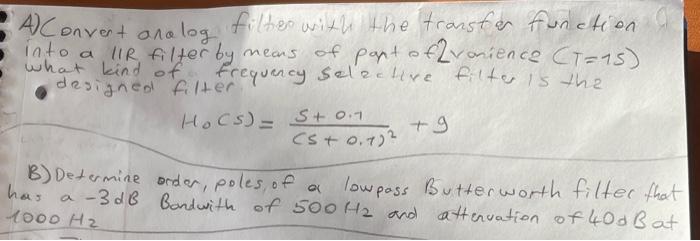 A) Convert analog filter with the transfer function
into a IIR filter by means of of (T=1S)
what kind of frequency selective filter is the
designed filter.
Ho(S) = S+0.1 / (S+0.1)² + 9
B) Determine order, poles, of a lowpass Butterworth filter that
has a -3dB Bandwith of 500Hz and attenuation of 40dB at
1000Hz